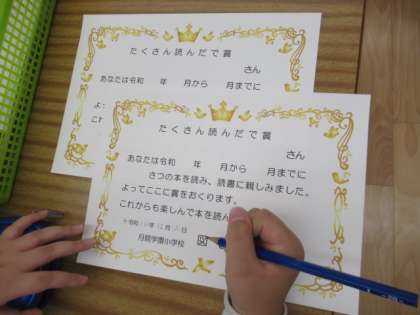 たくさん読んだで賞
さん
あなたは令和　年　月から　月までに
よ
こ
たくさん読んだで賞
さん
あなたは令和　年　月から　月までに
さつの本を読み、読書に親しみました。
よってここに賞をおくります。
これからも楽しんで本を読ん
令和　年　月　日
学園小学校　図